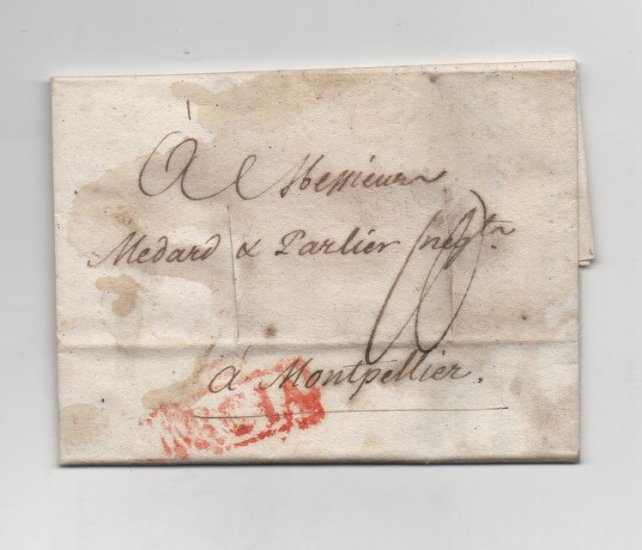 A Messieurs
Medard & Parlier négts
à Montpellier.